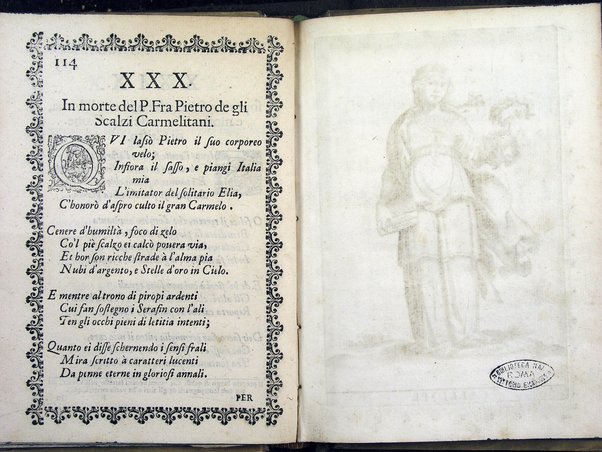 114
XXX.
In morte del P. Fra Pietro de gli
Scalzi Carmelitani.
QVI lasiò Pietro il suo corporeo
velo;
Infiora il sasso, e piangi Italia
mia
L'imitator del solitario Elia,
C'honorò d'aspro culto il gran Carmelo.
Cenere d'humiltà, foco di zelo
Co'l piè scalzo ei calcò pouera via,
Et hor son ricche strade à l'alma pia
Nubi d'argento, e Stelle d'oro in Cielo.
E mentre al trono di piropi ardenti
Cui fan sostegno i Serafin con l'ali
Ten gli occhi pieni di letitia intenti;
Quanto ei disse schernendo i sensi frali
Mira scritto à caratteri lucenti
Da penne eterne in gloriosi annali.
PER
BIBLIOTECA NAZ
ROMA
VITTORIO EMANUELE